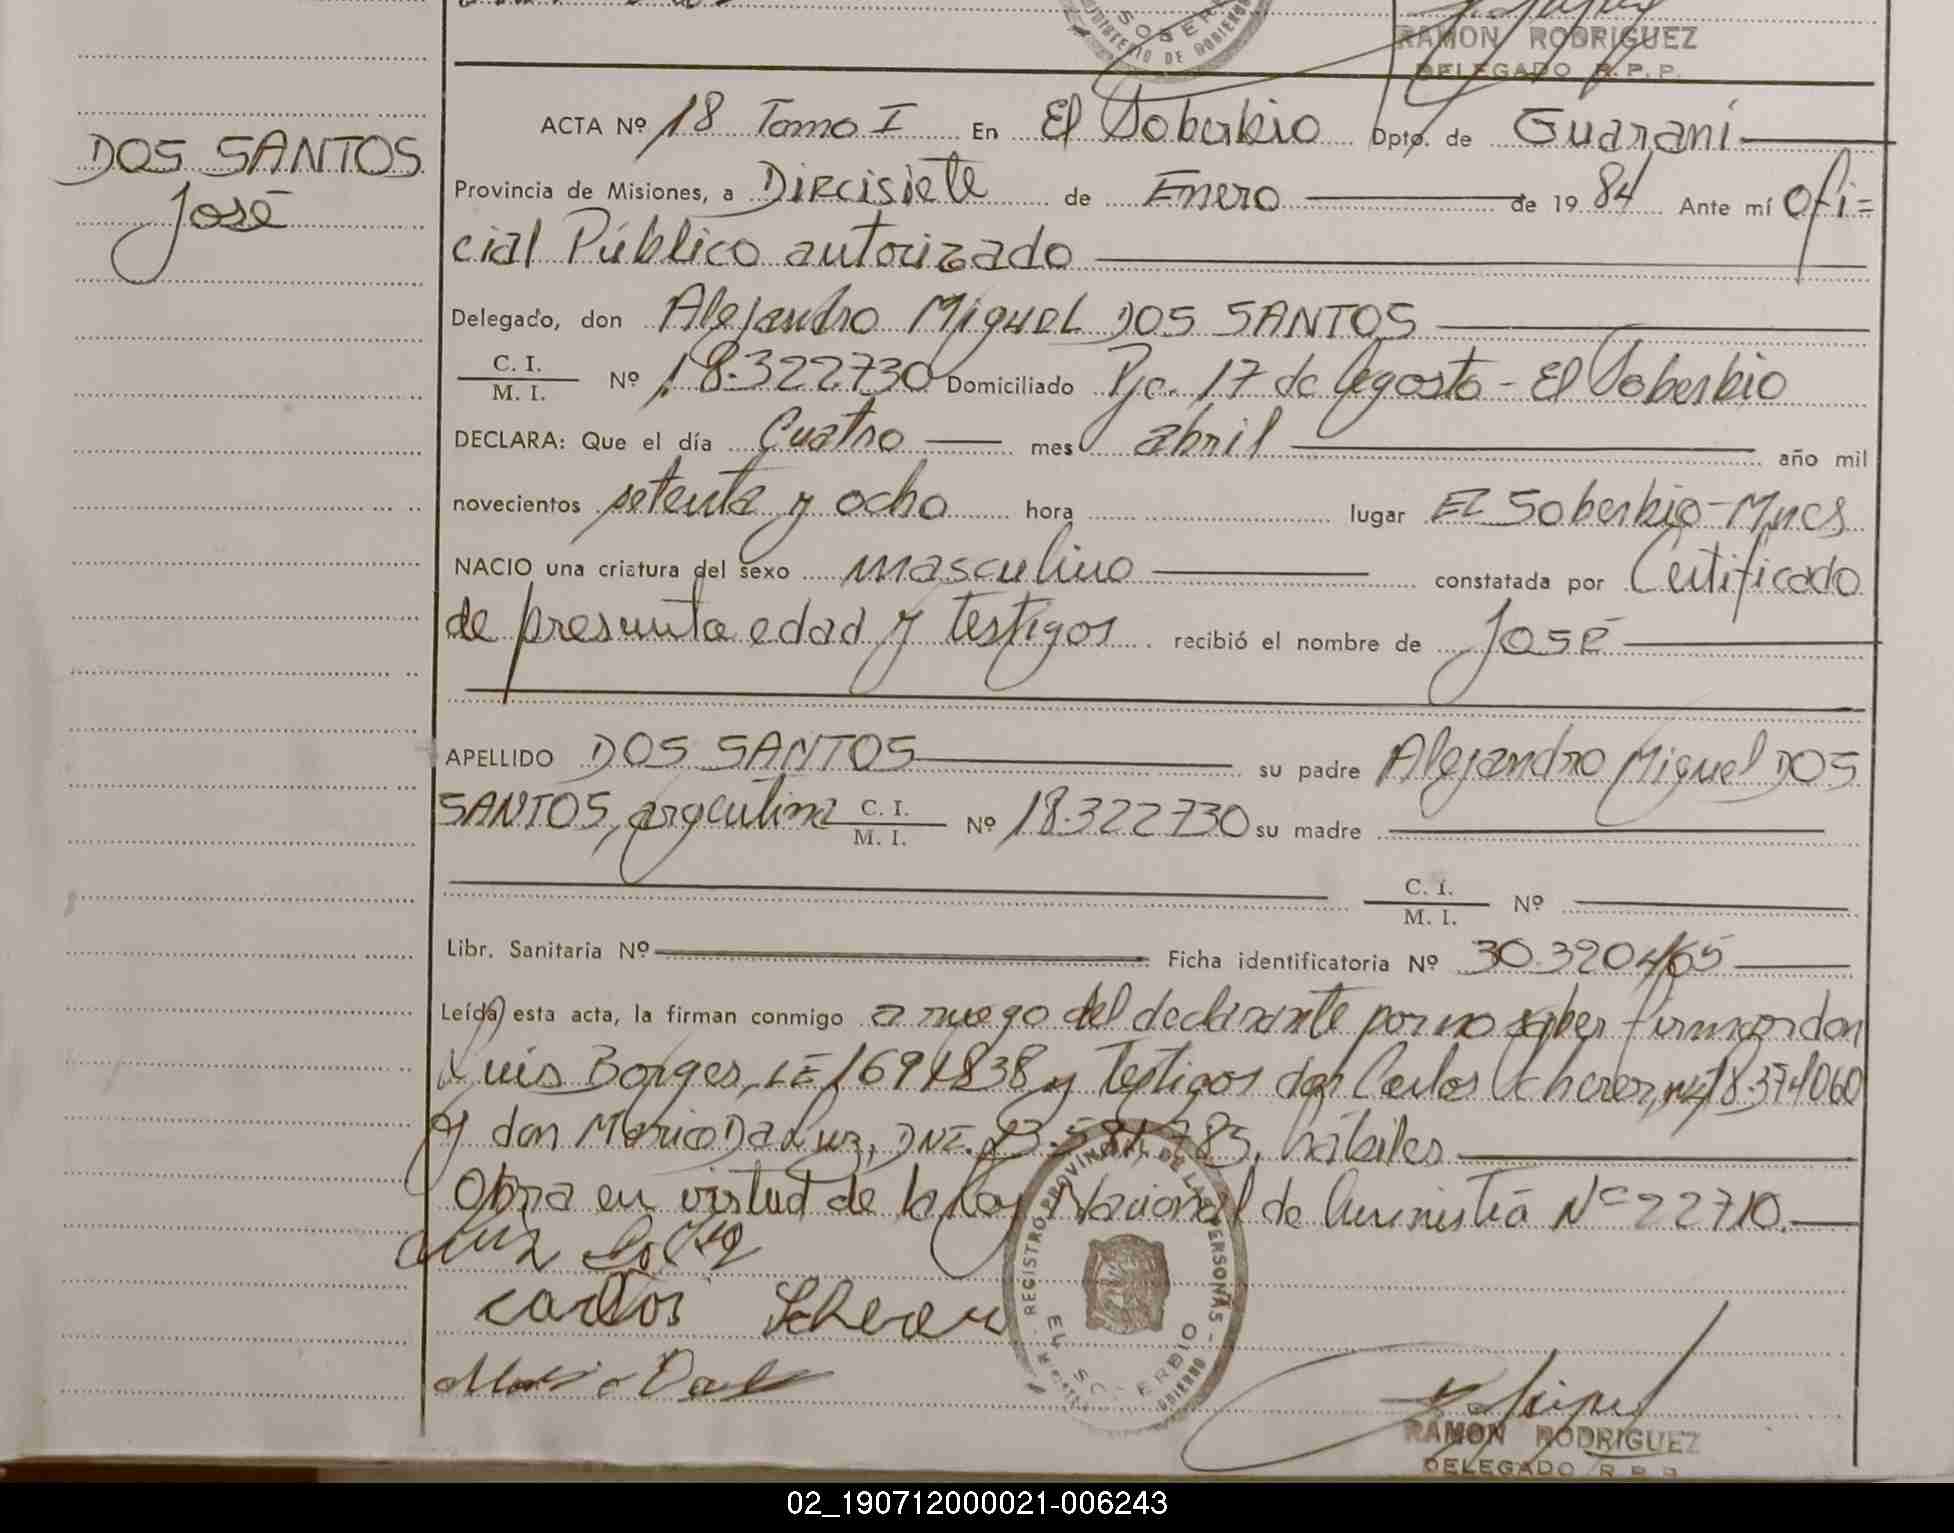 RAMON RODRIGUEZ
DELEGADO R.P.P.
DOS SANTOS
José
ACTA Nº 18 Tomo I En El Soberbio Dpto. de Guaraní
Provincia de Misiones, a Diecisiete de Enero de 1984 Ante mí Ofi=
cial Público autorizado
Delegado, don Alejandro Miguel DOS SANTOS
C. I. / M. I. Nº 18.322.730 Domiciliado Pje. 17 de Agosto - El Soberbio
DECLARA: Que el día Cuatro mes abril año mil
novecientos setenta y ocho hora lugar El Soberbio - Mnes
NACIO una criatura del sexo masculino constatada por Certificado
de presunta edad y testigos recibió el nombre de José
APELLIDO DOS SANTOS su padre Alejandro Miguel DOS
SANTOS, argentina C. I. / M. I. Nº 18.322730 su madre
C. I. / M. I. Nº
Libr. Sanitaria Nº Ficha identificatoria Nº 30.390465
Leída esta acta, la firman conmigo a ruego del declarante por no saber firmar don
Luis Borges, LE 1694838 y testigos don Carlos Scherer, MI 18.374060
y don Mario Da Luz, DNI. 785, hábiles
Obra en virtud de la Ley Nacional de Aministía Nº 22710.
Carlos Scherer
REGISTRO PROVINCIAL DE LAS PERSONAS
EL SOBERBIO
RAMON RODRIGUEZ
DELEGADO R.P.P.
02_190712000021-006243